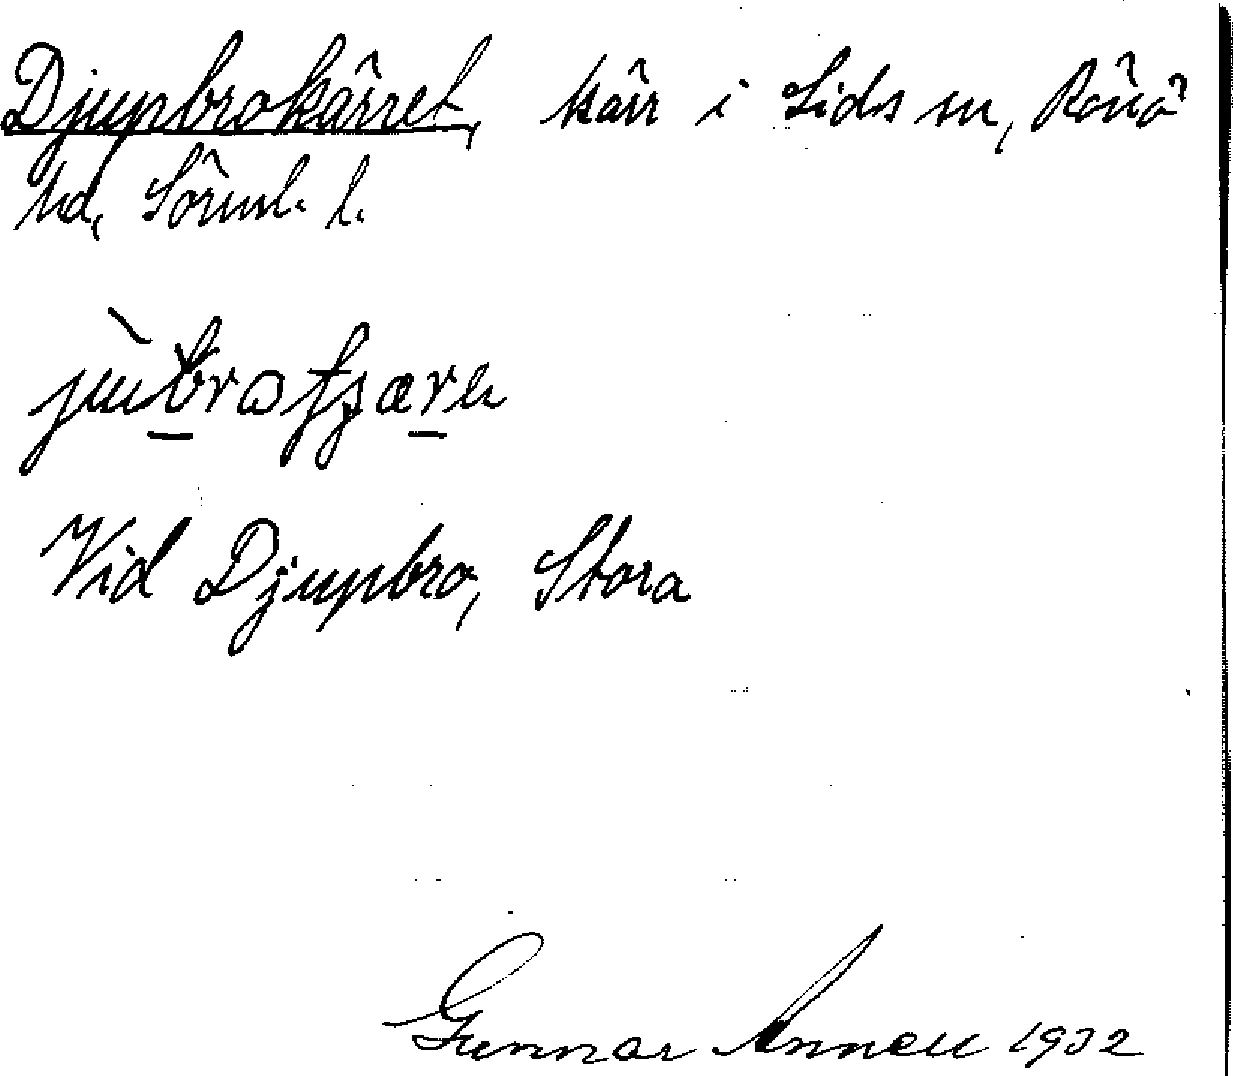 Djupbrokärret, kärr i Lids sn, Rönö
hd, Sörml. l.
Vid Djupbro, Stora
Gunnar Annell 1932